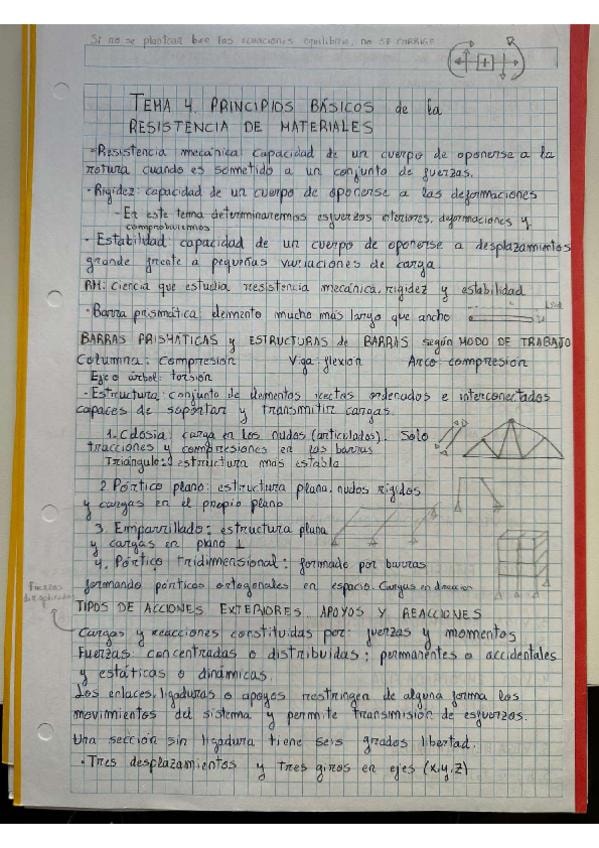 Si no se plantean bien las ecuaciones equilibrio, no SE CORRIGE
TEMA 4. PRINCIPIOS BÁSICOS de la
RESISTENCIA DE MATERIALES
- Resistencia mecánica: Capacidad de un cuerpo de oponerse a la
rotura cuando es sometido a un conjunto de fuerzas.
- Rigidez: capacidad de un cuerpo de oponerse a las deformaciones
- En este tema determinaremos esfuerzos interiores, deformaciones y
comprobaremos
- Estabilidad: capacidad de un cuerpo de oponerse a desplazamientos
grande frente a pequeñas variaciones de carga.
RM: Ciencia que estudia resistencia mecánica, rigidez y estabilidad
- Barra prismática: elemento mucho más largo que ancho
BARRAS PRISMÁTICAS y ESTRUCTURAS de BARRAS según MODO DE TRABAJO
Columna: Compresión Viga: flexión Arco: compresión
Eje o árbol: torsión
- Estructura: conjunto de elementos rectas ordenados e interconectados
capaces de soportar y transmitir cargas.
1. Celosía: carga en los nudos (articulados). Solo
tracciones y compresiones en las barras
Triángulo: estructura más estable
2. Pórtico plano: estructura plana, nudos rígidos
y cargas en el propio plano
3. Emparrillado: estructura plana
y cargas en plano ⊥
4. Pórtico tridimensional: formado por barras
formando pórticos ortogonales en espacio. Cargas en
Fuerzas
TIPOS DE ACCIONES EXTERIORES. APOYOS Y REACCIONES
Cargas y reacciones constituidas por: fuerzas y momentos
Fuerzas: concentradas o distribuidas; permanentes o accidentales
y estáticas o dinámicas.
Los enlaces, ligaduras o apoyos restringen de alguna forma los
movimientos del sistema y permite transmisión de esfuerzos.
Una sección sin ligadura tiene seis grados libertad.
• Tres desplazamientos y tres giros en ejes (x,y,z)